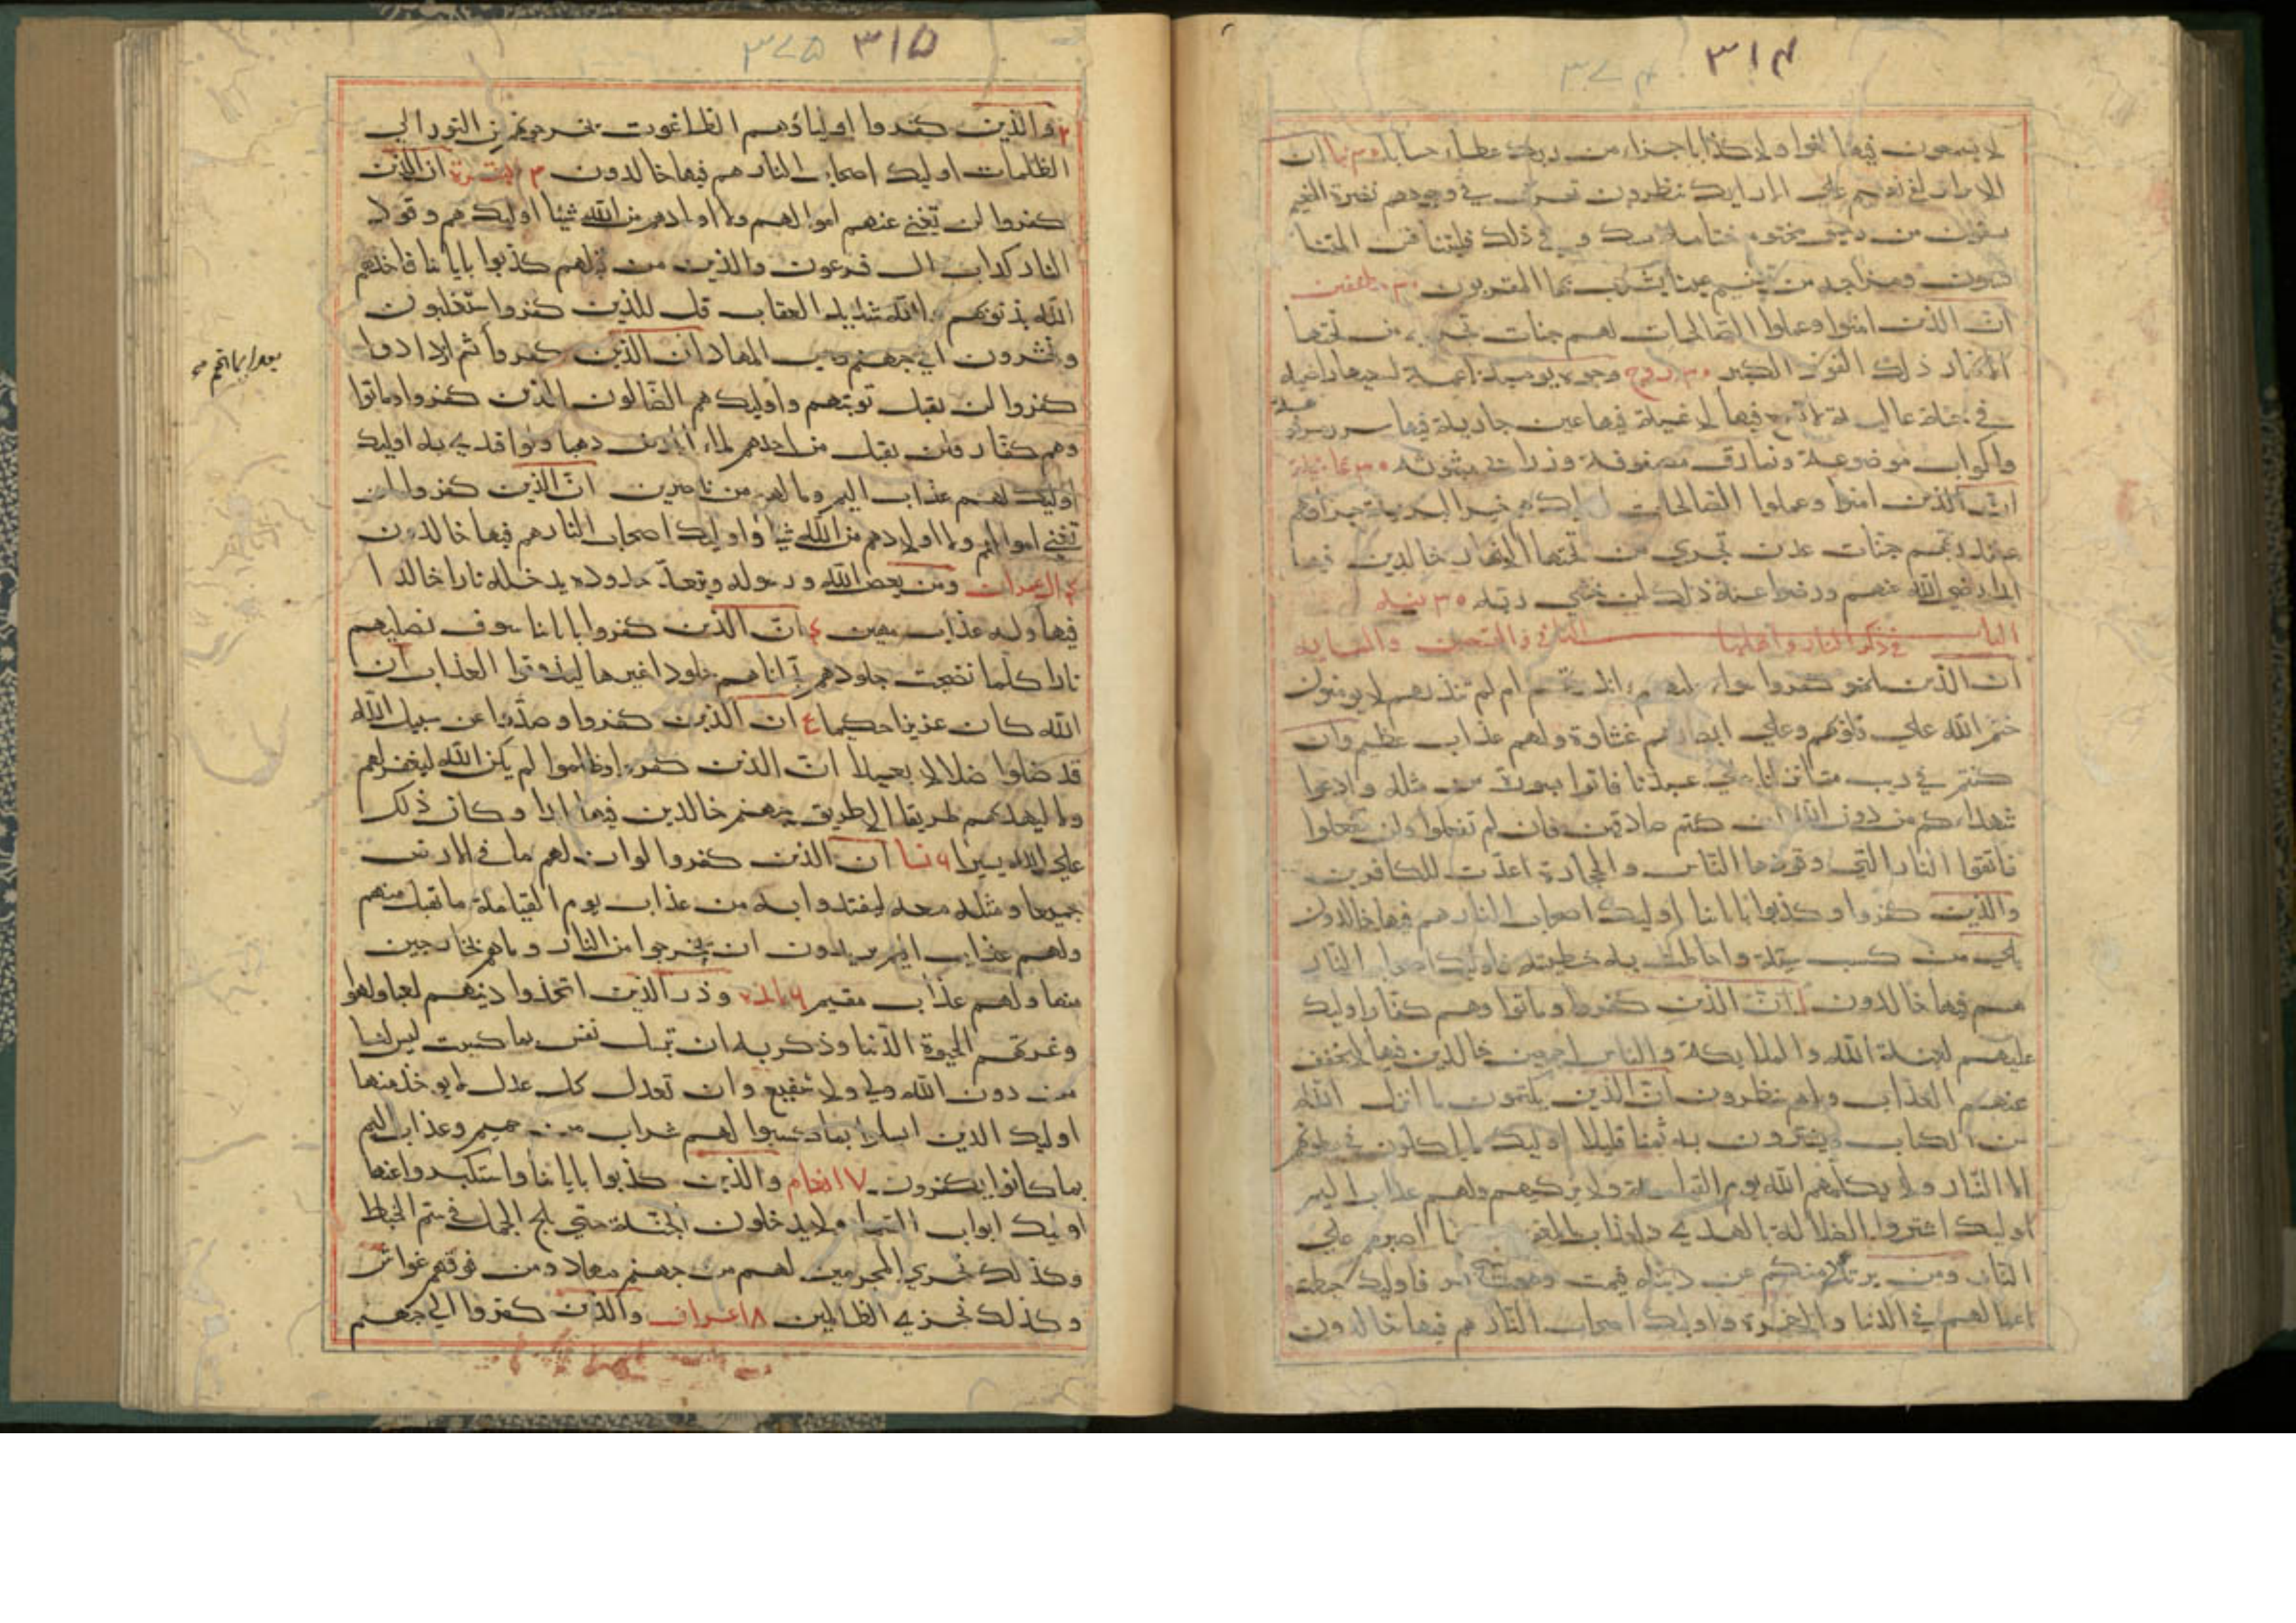 ٣١٤ ٣٧٤
لا يسمعون فيها لغوا ولا كذابا جزاء من ربك عطاء حسابا ٣٠ نبا ان
الابرار لفي نعيم علي الارايك ينظرون تعرف في وجوههم نضرة النعيم
يسقون من رحيق مختوم ختامه مسك و في ذلك فليتنافس المتنا
فسون ومزاجه من تسنيم عينا يشرب بها المقربون ٣٠ مطففين
ان الذين امنوا وعملوا الصالحات لهم جنات تجري من تحتها
الانهار ذلك الفوز الكبير ٣٠ بروج وجوه يوميذ ناعمة لسعيها راضية
في جنة عالية لا تسمع فيها لاغية فيها عين جارية فيها سرر مرفوعة
واكواب موضوعة ونمارق مصفوفة وزرابي مبثوثه ٣٠ غاشية
ان الذين امنوا وعملوا الصالحات اوليك هم خير البرية جزاؤهم
عند ربهم جنات عدن تجري من تحتها الانهار خالدين فيها
ابدا رضي الله عنهم ورضوا عنه ذلك لمن خشي ربه ٣٠ بينه
الباب الثاني والتسعين والمايه في ذكر النار واهلها
ان الذين كفروا سواء عليهم ءانذرتهم ام لم تنذرهم لا يومنون
ختم الله علي قلوبهم وعلي ابصارهم غشاوة ولهم عذاب عظيم وان
كنتم في ريب مما نزلنا علي عبدنا فاتوا بسورة من مثله وادعوا
شهداءكم من دون الله ان كنتم صادقين فان لم تفعلوا ولن تفعلوا
فاتقوا النار التي وقودها الناس والحجارة اعدت للكافرين
والذين كفروا وكذبوا باياتنا اوليك اصحاب النار هم فيها خالدون
بلي من كسب سيئة واحاطت به خطيئته فاوليك اصحاب النار
هم فيها خالدون ان الذين كفروا وماتوا وهم كفار اوليك
عليهم لعنة الله والملايكة والناس اجمعين خالدين فيها لا يخفف
عنهم العذاب ولا هم ينظرون ان الذين يكتمون ما انزل الله
من الكتاب ويشترون به ثمنا قليلا اوليك ما ياكلون في بطونهم
الا النار ولا يكلمهم الله يوم القيامة ولا يزكيهم ولهم عذاب اليم
اوليك اشتروا الضلالة بالهدي والعذاب بالمغفرة فما اصبرهم علي
النار ومن يرتدد منكم عن دينه فيمت وهو كافر فاوليك حبطت
اعمالهم في الدنيا والاخرة واوليك اصحاب النار هم فيها خالدون
٣١٥ ٣٧٥
٢ والذين كفروا اولياؤهم الطاغوت يخرجونهم من النور الي
الظلمات اوليك اصحاب النار هم فيها خالدون ٣ البقرة ان الذين
كفروا لن تغني عنهم اموالهم ولا اولادهم من الله شيئا اوليك هم وقود
النار كداب ال فرعون والذين من قبلهم كذبوا باياتنا فاخذهم
الله بذنوبهم والله شديد العقاب قل للذين كفروا ستغلبون
وتحشرون الي جهنم وبيس المهاد ان الذين كفروا ثم ازدادوا
كفروا لن تقبل توبتهم واوليك هم الضالون الذين كفروا وماتوا
وهم كفار فلن يقبل من احدهم ملء الارض ذهبا ولو افتدي به اوليك
اوليك لهم عذاب اليم وما لهم من ناصرين ان الذين كفروا لن
تغني اموالهم ولا اولادهم من الله شيئا واوليك اصحاب النار هم فيها خالدون
٤ ال عمران ومن يعص الله ورسوله ويتعد حدوده يدخله نارا خالدا
فيها وله عذاب مهين ٤ ان الذين كفروا باياتنا سوف نصليهم
نارا كلما نضجت جلودهم بدلناهم جلودا غيرها ليذوقوا العذاب ان
الله كان عزيزا حكيما ٤ ان الذين كفروا وصدوا عن سبيل الله
قد ضلوا ضلالا بعيدا ان الذين كفروا وظلموا لم يكن الله ليغفر لهم
ولا ليهديهم طريقا الا طريق جهنم خالدين فيها ابدا وكان ذلك
علي الله يسيرا ٦ نسا ان الذين كفروا لو ان لهم ما في الارض
جميعا ومثله معه ليفتدوا به من عذاب يوم القيامة ما تقبل منهم
ولهم عذاب اليم يريدون ان يخرجوا من النار وما هم بخارجين
منها ولهم عذاب مقيم ٦ مايده وذر الذين اتخذوا دينهم لعبا ولهوا
وغرتهم الحيوة الدنيا وذكر به ان تبسل نفس بما كسبت ليس لها
من دون الله ولي ولا شفيع وان تعدل كل عدل لا يوخذ منها
اوليك الذين ابسلوا بما كسبوا لهم شراب من حميم وعذاب اليم
بما كانوا يكفرون ٧ انعام والذين كذبوا باياتنا واستكبروا عنها
اوليك ابواب السما ولا يدخلون الجنة حتي يلج الجمل في سم الخياط
وكذلك نجزي المجرمين لهم من جهنم مهاد ومن فوقهم غواش
وكذلك نجزي الظالمين ٨ اعراف والذين كفروا الي جهنم